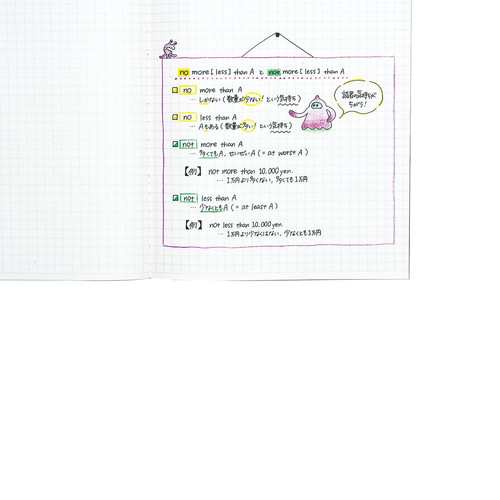 no more [less] than A と not more [less] than A
no more than A
… しかない (数量が少ない! という気持ち)
話者の気持ちが
ちがう!
no less than A
… Aもある (数量が多い! という気持ち)
not more than A
… 多くてもA, せいぜいA (= at worst A)
【例】 not more than 10.000 yen.
… 1万円より多くない, 多くても1万円
not less than A
… 少なくともA (= at least A)
【例】 not less than 10.000 yen.
… 1万円より少なくはない, 少なくとも1万円